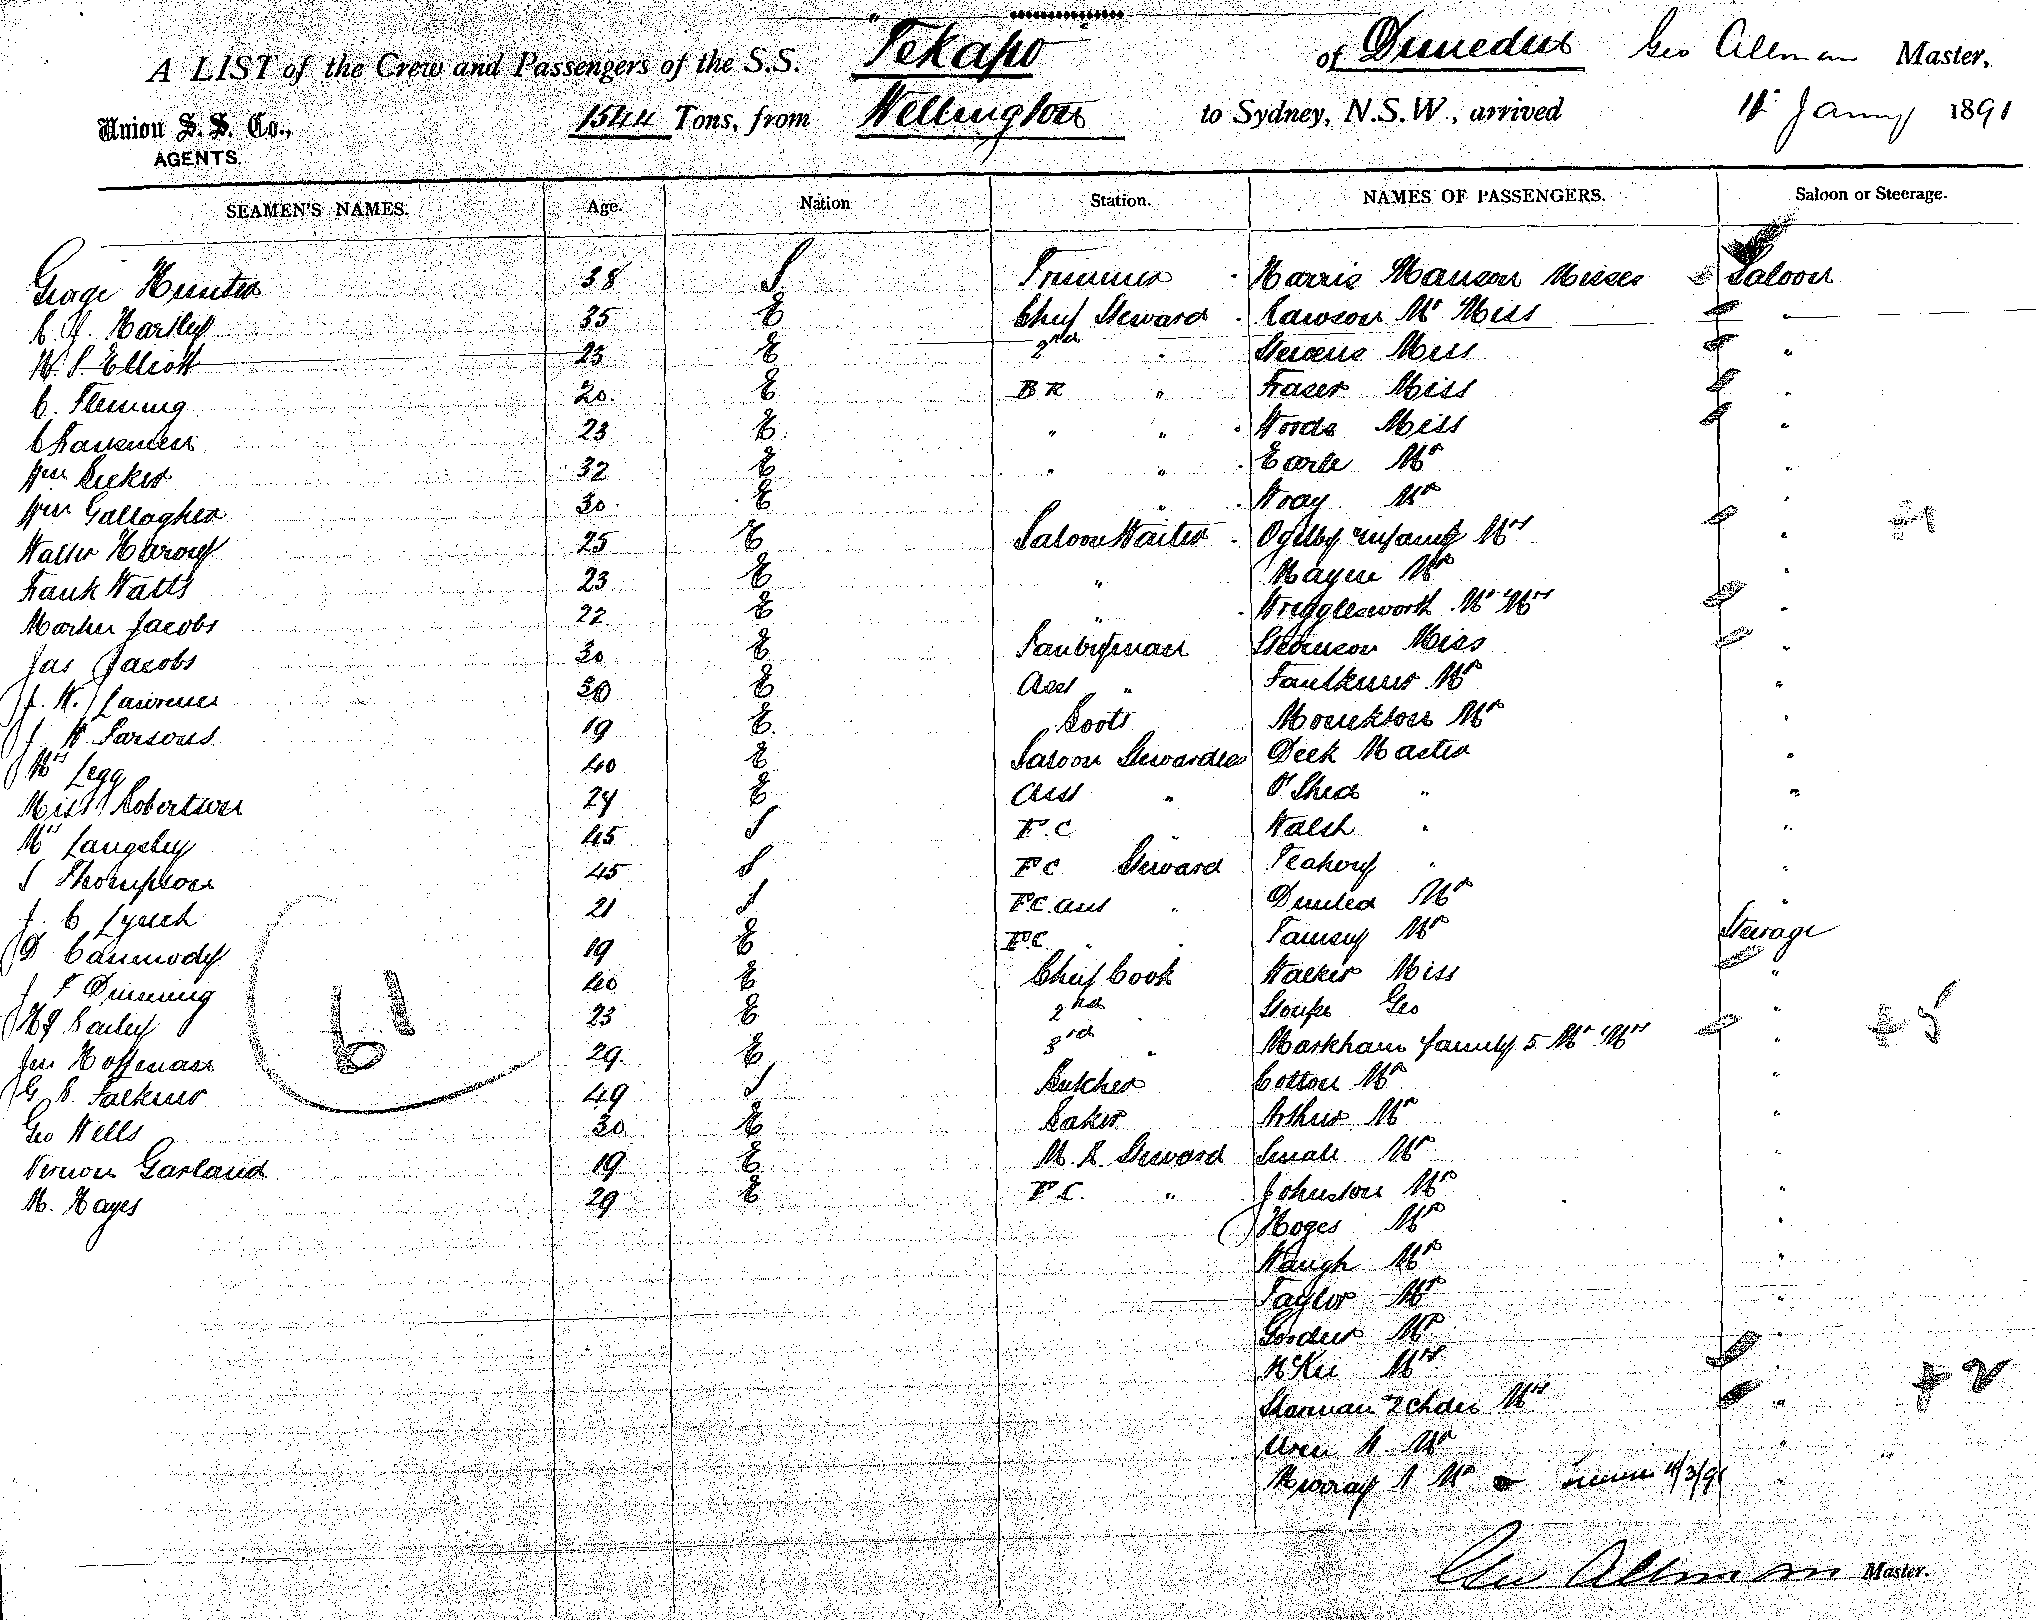 A LIST of the Crew and Passengers of the S.S. "Tekapo of Dunedin Geo Allman Master,
Union S. S. Co., 1544 Tons, from Wellington to Sydney, N.S.W., arrived Jany 1891
AGENTS.
SEAMEN'S NAMES. Age. Nation Station. NAMES OF PASSENGERS. Saloon or Steerage.
George Hunter 38 S Trimmer Harris Manson Misses Saloon
C. J. Hartley 35 E Chief Steward Lawson Mr Miss "
W. S. Elliott 23 E 2nd " Stevens Miss "
C. Fleming 20 E B R " Fraser Miss "
23 E " " Woods Miss "
Wm 32 E " " Earle Mr "
Wm Gallagher 30 E " Wray Mr "
Walter Harvey 25 E Saloon Waiter Ogilby infant Mrs " + 1
Frank Watts 23 E " Mayne Mr "
Jacobs 22 E " Wrigglesworth Mr Mrs "
Jas Jacobs 30 E Pantryman Stevenson Miss "
J. W. Lawrence 30 E Asst " Faulkner Mr "
J W Parsons 19 E Boots Monckton Mr "
Mrs Legg 40 E Saloon Stewardess Deck Master "
Miss Robertson 24 E Asst " O'Shea " "
Mrs Langsley 45 S F.C " Walsh " "
S Thompson 45 S F C Steward Leahory " "
J. C Lynch 21 S F.C. asst " Mr "
D Carmody 19 E F.C. " " Tamsey Mr Steerage
J F Dinning 40 E Chief Cook Walker Miss "
H J Bailey 23 E 2nd " Stoupe Geo "
Hoffman 29 E 3rd " Markham family 5 Mr Mrs " + 5
G. B. Falkner 49 S Butcher Cotton Mr "
Geo Wells 30 E Baker Arthur Mr "
Vernon Garland 19 E M. R. Steward Smale Mr "
M. Hayes 29 E F C. " Johnston Mr "
Hoges Mr "
Waugh Mr "
Taylor Mr "
Mr "
McKee Mrs "
2 chdn Mrs " + 2
Mr "
Murray Mr 4/3/91 "
61
Geo Allman Master.